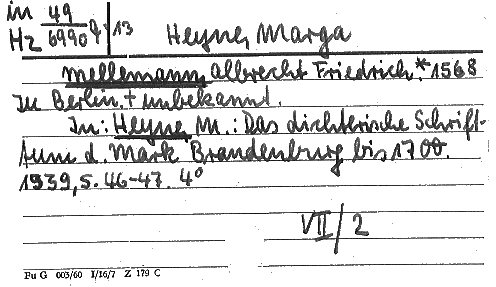 in 49
Hz 6990 q 13
Heyne, Marga
Mellemann, Albrecht Friedrich. * 1568
In Berlin. + unbekannt.
In: Heyne, M.: Das dichterische Schrift-
tum d. Mark Brandenburg bis 1700.
1939, S. 46-47. 4°
VII/2
Fu G 005/60 I/16/7 Z 179 C